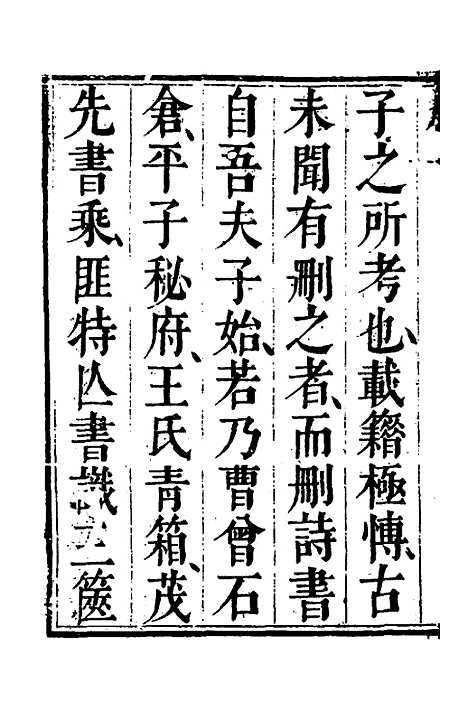 子之所考也、載籍極愽、古
未聞有刪之者、而刪詩書
自吾夫子始、若乃曹曾石
倉、平子秘府、王氏青箱、茂
先書乘、匪特亾書識三篋